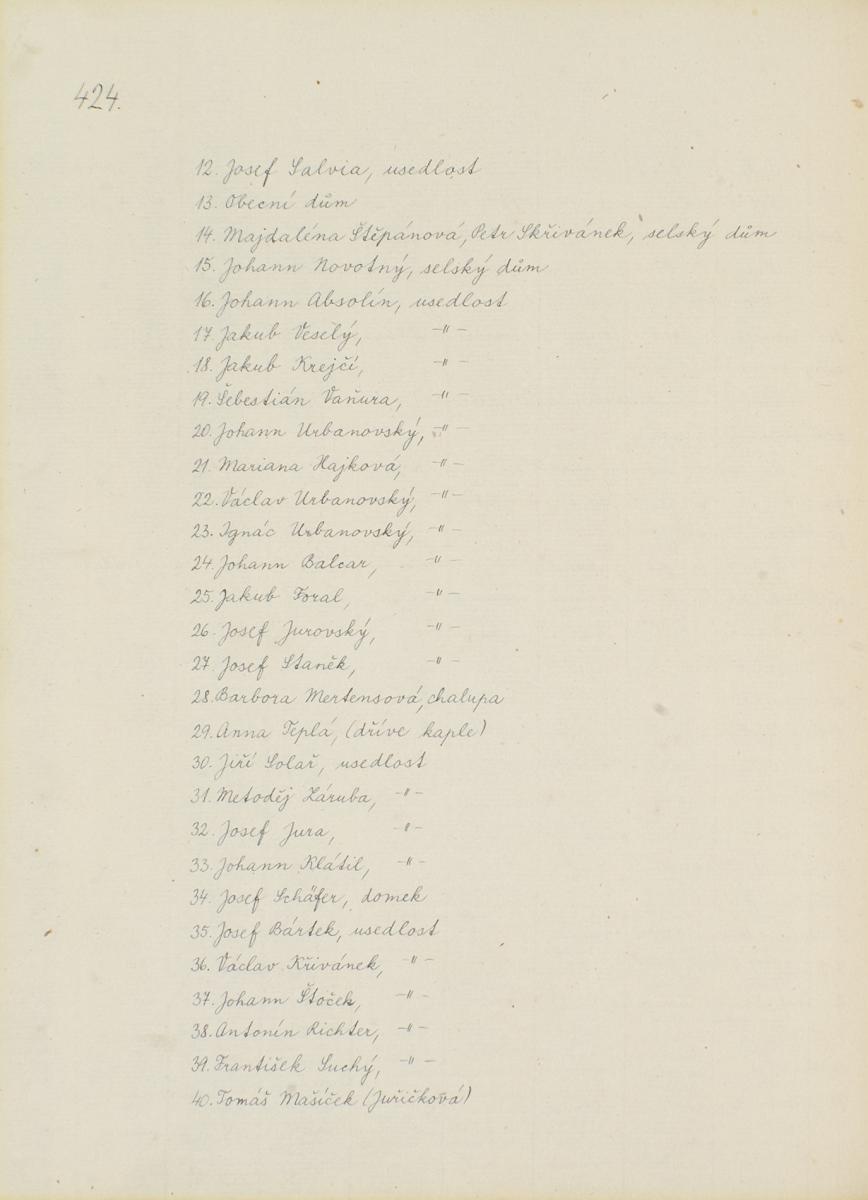 424.
12. Josef Salvia, usedlost
13. Obecní dům
14. Majdaléna Štěpánová, Petr Skřivánek, selský dům
15. Johann Novotný, selský dům
16. Johann Absolín, usedlost
17. Jakub Veselý, -"-
18. Jakub Krejčí, -"-
19. Šebestián Vaňura, -"-
20. Johann Urbanovský, -"-
21. Mariana Hajková, -"-
22. Václav Urbanovský, -"-
23. Ignác Urbanovský, -"-
24. Johann Balcar, -"-
25. Jakub Foral, -"-
26. Josef Jurovský, -"-
27. Josef Staněk, -"-
28. Barbora Mertensová, chalupa
29. Anna Teplá, (dříve kaple)
30. Jiří Solař, usedlost
31. Metoděj Záruba, -"-
32. Josef Jura, -"-
33. Johann Klátil, -"-
34. Josef Schäfer, domek
35. Josef Bártek, usedlost
36. Václav Křivánek, -"-
37. Johann Štoček, -"-
38. Antonín Richter, -"-
39. František Suchý, -"-
40. Tomáš Mašíček (Juřičková)